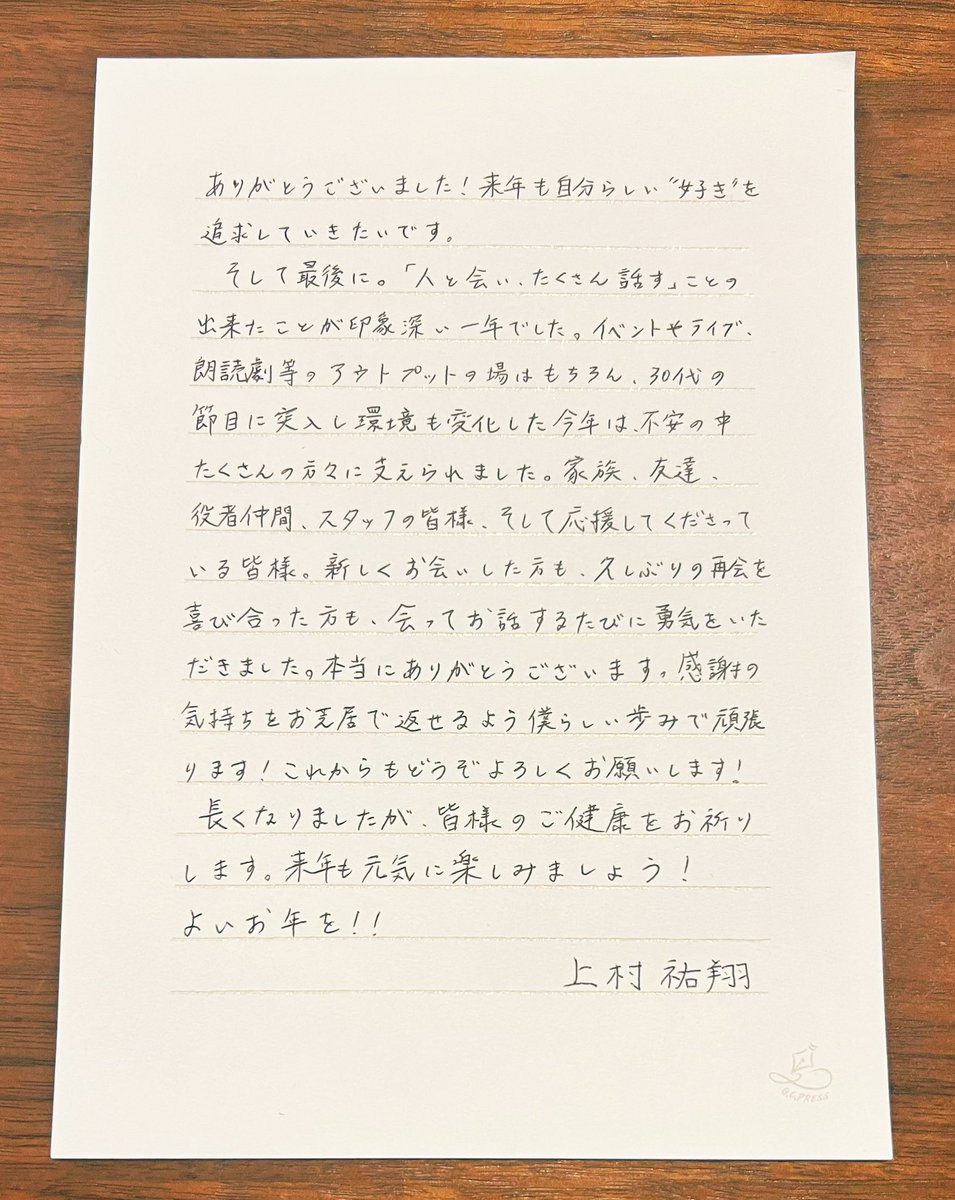 ありがとうございました！来年も自分らしい“好き”を
追求していきたいです。
そして最後に。「人と会い、たくさん話す」ことの
出来たことが印象深い一年でした。イベントやライブ、
朗読劇等のアウトプットの場はもちろん、30代の
節目に突入し環境も変化した今年は、不安の中
たくさんの方々に支えられました。家族、友達、
役者仲間、スタッフの皆様、そして応援してくださって
いる皆様。新しくお会いした方も、久しぶりの再会を
喜び合った方も、会ってお話するたびに勇気をいた
だきました。本当にありがとうございます。感謝の
気持ちをお芝居で返せるよう僕らしい歩みで頑張
ります！これからもどうぞよろしくお願いします！
長くなりましたが、皆様のご健康をお祈り
します。来年も元気に楽しみましょう！
よいお年を！！
上村祐翔
G.C.PRESS